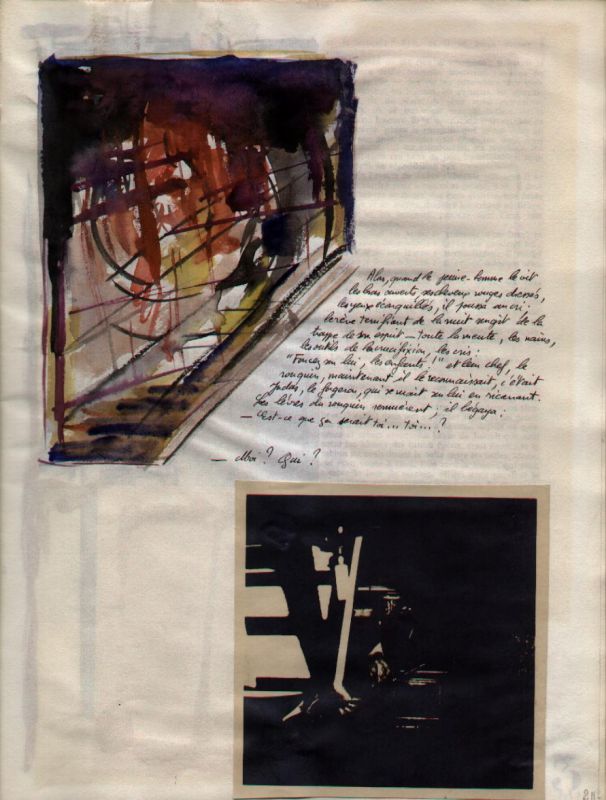 Alors, quand le jeune-homme le vit
les bras ouverts, ses cheveux rouges dressés,
les yeux écarquillés, il poussa un cri.
Le rêve terrifiant de la nuit surgit de la
trappe de son esprit – toute la meute, les nains,
les outils de la crucifixion, les cris :
"Foncez sur lui, les enfants !" et leur chef, le
rouquin, maintenant il le reconnaissait, c'était
Judas, le qui se ruait sur lui en ricanant.
Les lèvres du rouquin remuèrent, il bégaya :
— Est-ce que ça serait toi... toi... ?
— Moi ? Qui ?